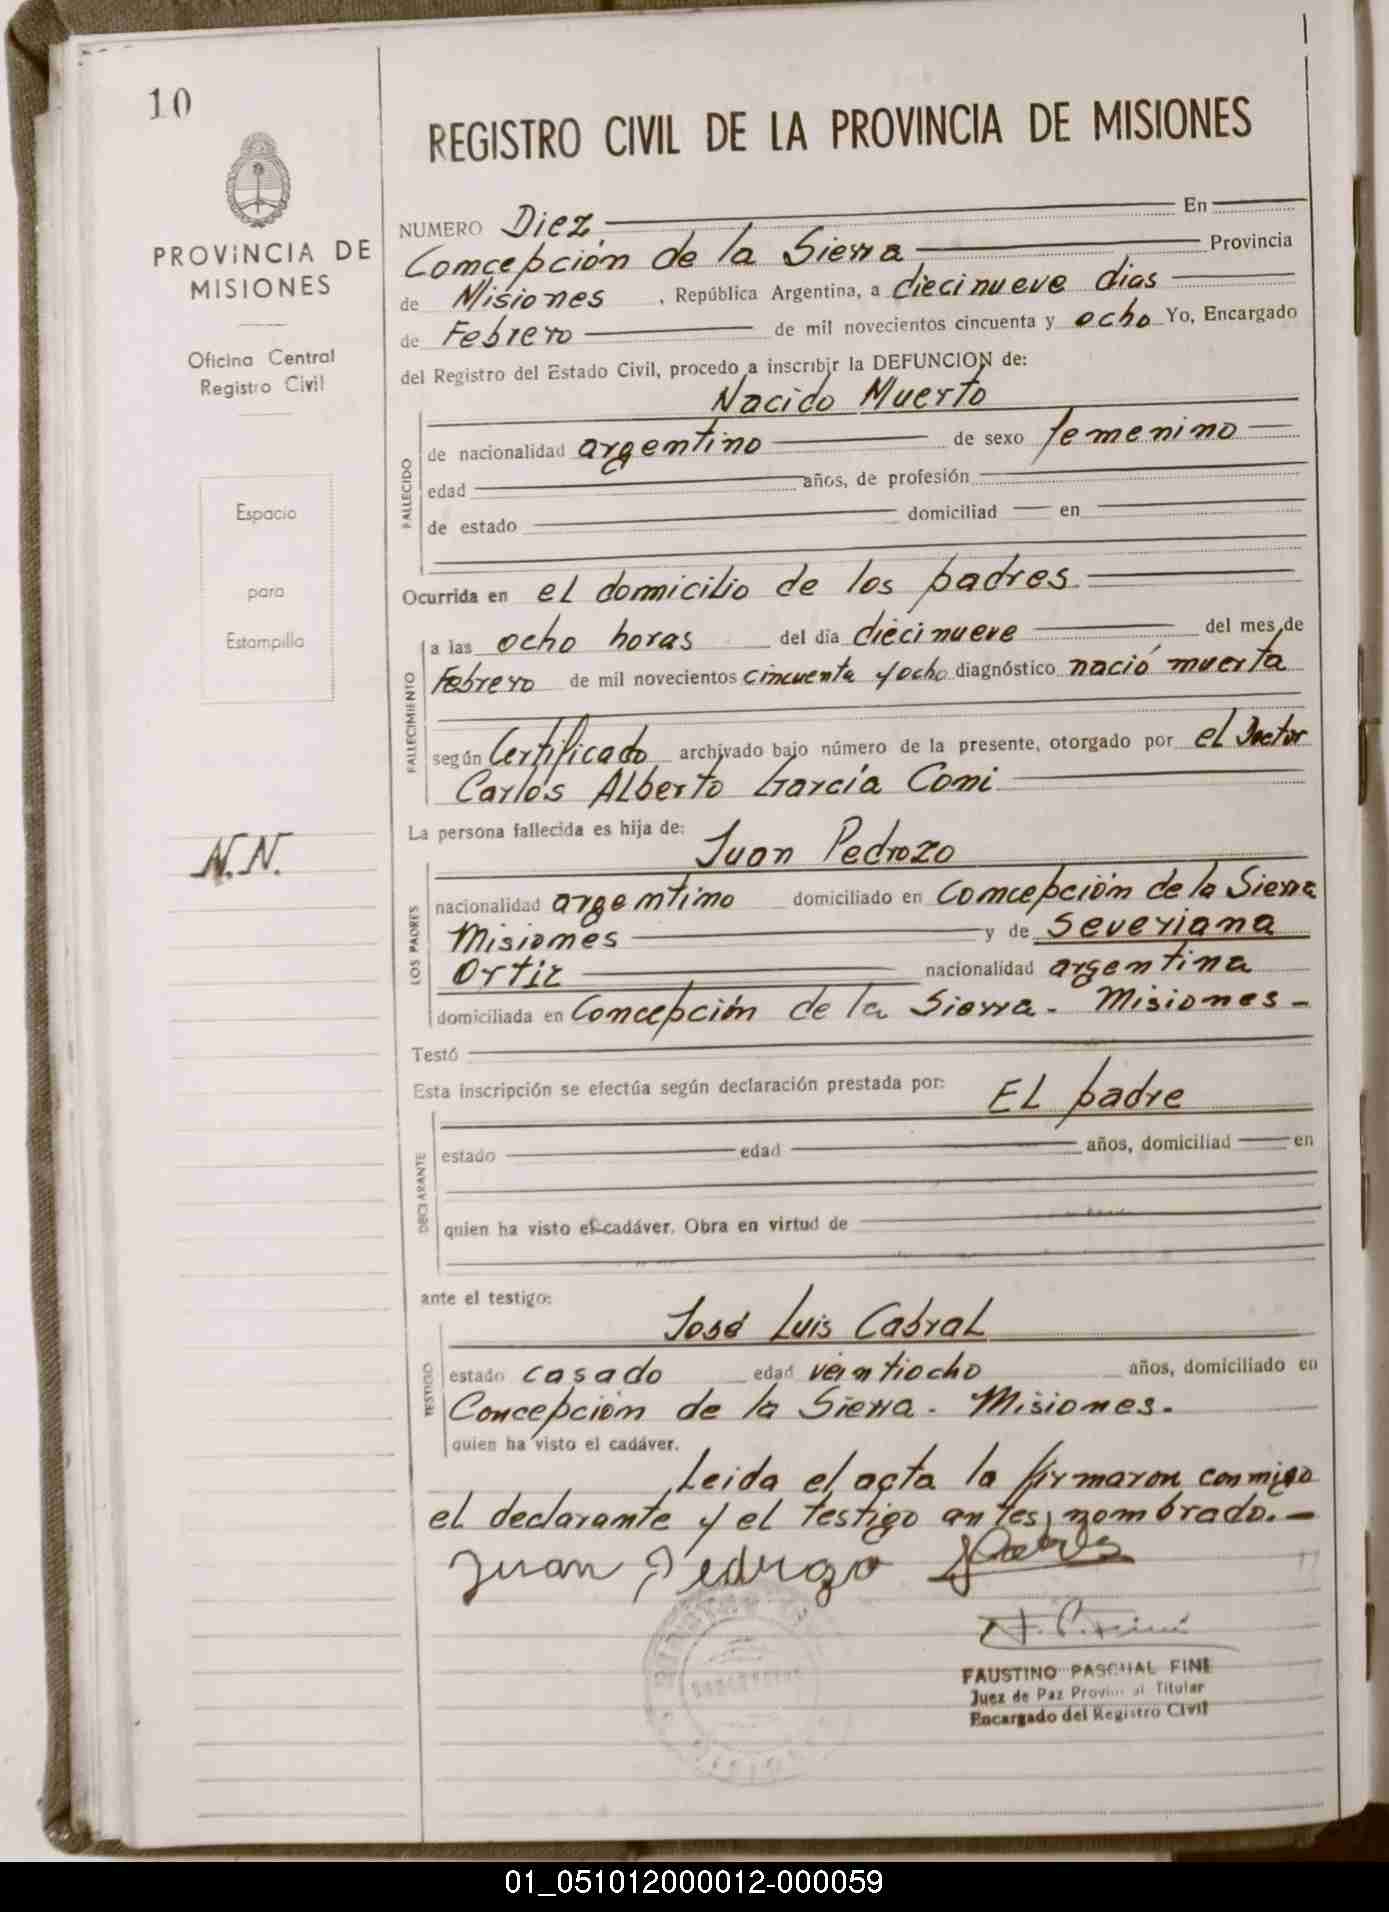 10
PROVINCIA DE
MISIONES
Oficina Central
Registro Civil
Espacio
para
Estampilla
N.N.
REGISTRO CIVIL DE LA PROVINCIA DE MISIONES
NUMERO Diez En
Concepción de la Sierra Provincia
de Misiones, República Argentina, a diecinueve dias
de Febrero de mil novecientos cincuenta y ocho Yo, Encargado
del Registro del Estado Civil, procedo a inscribir la DEFUNCION de:
Nacido Muerto
FALLECIDO
de nacionalidad argentino de sexo femenino
edad años, de profesión
de estado domiciliad en
Ocurrida en el domicilio de los padres
FALLECIMIENTO
a las ocho horas del día diecinueve del mes de
Febrero de mil novecientos cincuenta y ocho diagnóstico nació muerta
según Certificado archivado bajo número de la presente, otorgado por el Doctor
Carlos Alberto García Comi
La persona fallecida es hija de:
Juan Pedrozo
LOS PADRES
nacionalidad argentino domiciliado en Concepción de la Sierra
Misiones y de Severiana
Ortiz nacionalidad argentina
domiciliada en Concepción de la Sierra - Misiones -
Testó
Esta inscripción se efectúa según declaración prestada por: El padre
DECLARANTE
estado edad años, domiciliad en
quien ha visto el cadáver. Obra en virtud de
ante el testigo:
José Luis Cabral
TESTIGO
estado casado edad veintiocho años, domiciliado en
Concepción de la Sierra - Misiones.
quien ha visto el cadáver.
Leida el acta la firmaron conmigo
el declarante y el testigo antes nombrado.-
Juan Pedrozo
FAUSTINO PASCHAL FINE
Juez de Paz Provincial Titular
Encargado del Registro Civil
01_051012000012-000059